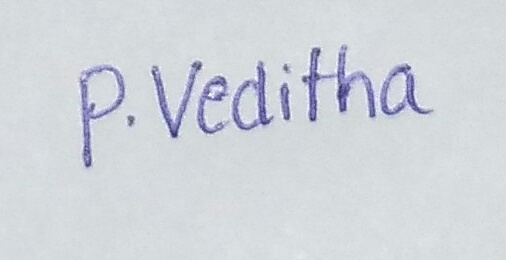 P. Veditha